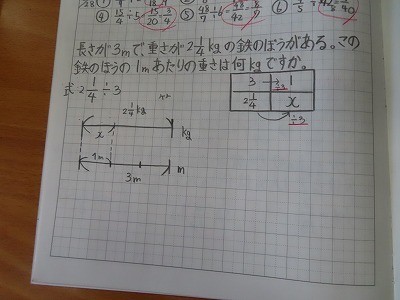 ④ 15/4 ÷ 5 = 15/20 = 3/4 ⑤ 48/7 ÷ 6 = 48/42 = 8/7 ⑥
長さが3mで、重さが2 1/4 kgの鉄のぼうがある。この
鉄のぼうの1mあたりの重さは何kgですか。
式 2 1/4 ÷ 3
3 1
2 1/4 x
÷3
2 1/4 kg
x kg
1m m
3m